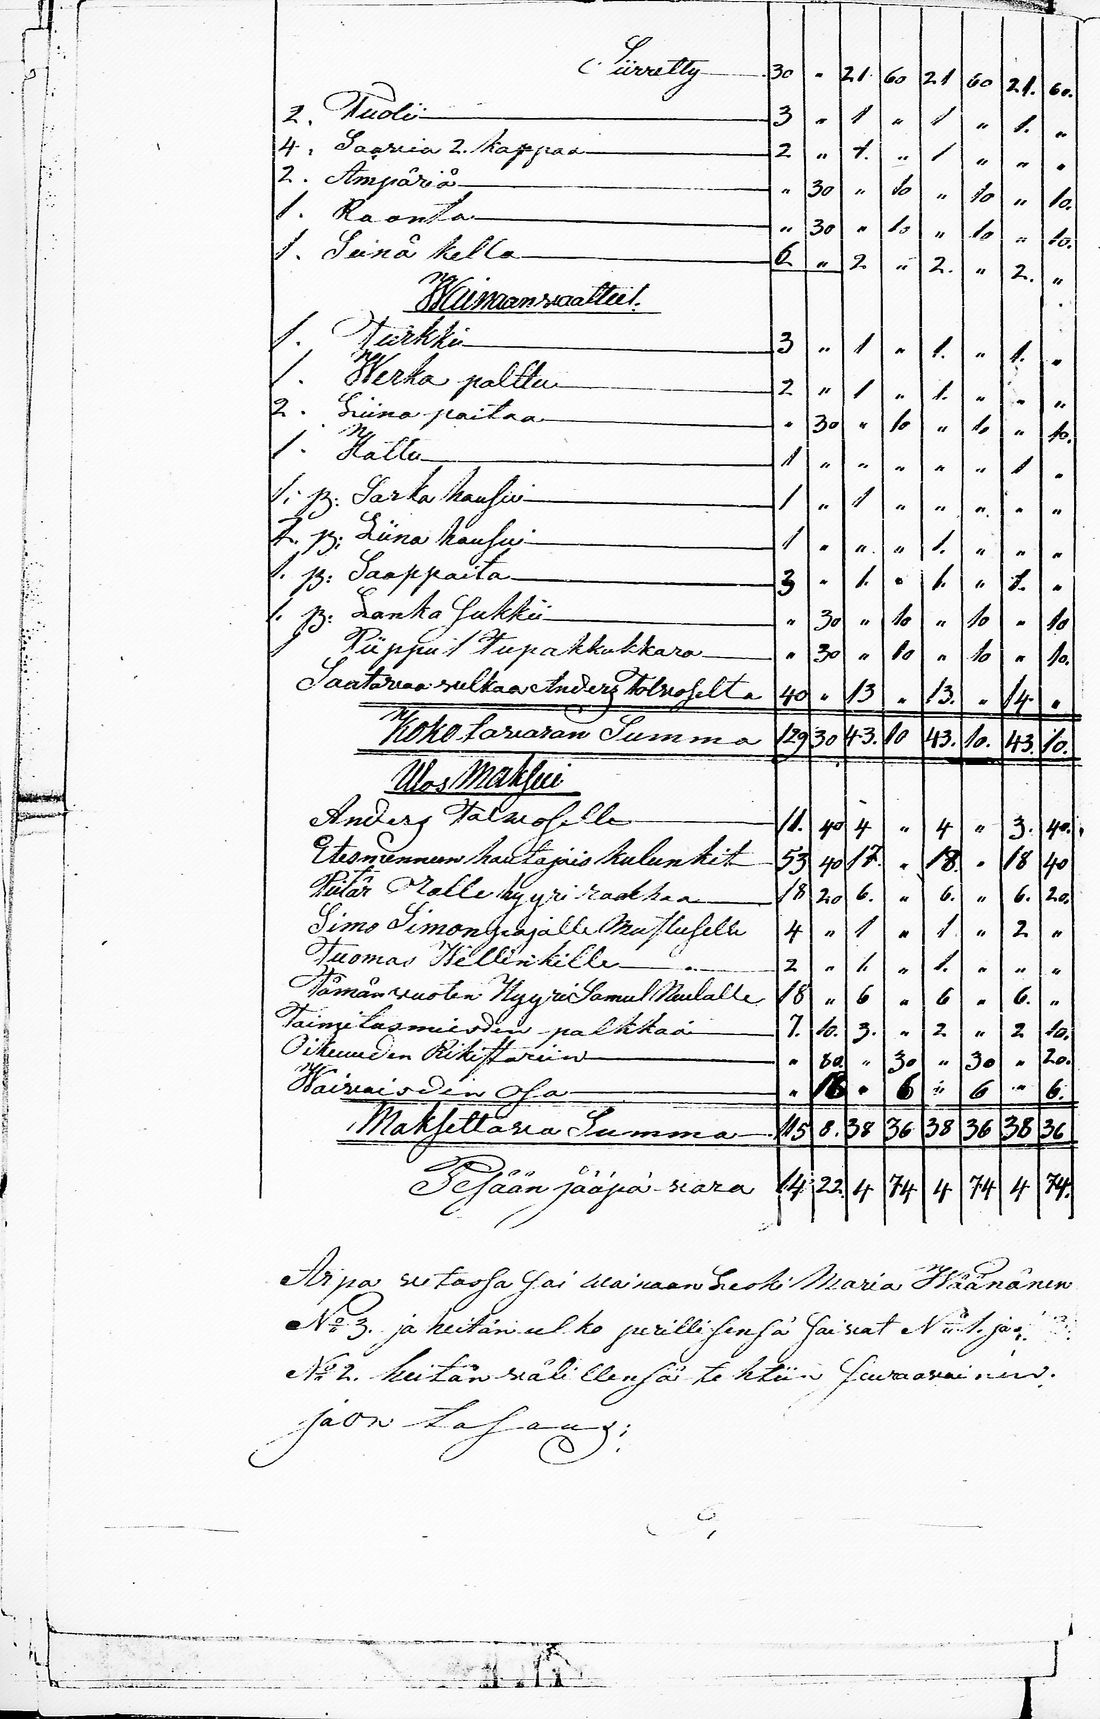 Siirretty 30 " 21. 60 21 60 21. 60.
2. Tuoli 3 " 1 " 1 " 1. "
4. Saavia 2. kappaa 2 " 1. " 1 " " "
2. Ämpäriä " 30 " 10 " 10 " 10.
1. Raanta " 30 " 10 " 10 " 10.
1. Seinä kello 6 " 2 " 2. " 2. "
Waimanvaatteet.
1. Turkki 3 " 1 " 1. " 1. "
1. Werka palttu 2 " 1 " 1. " " "
2. Liina paitaa " 30 " 10 " 10 " 10.
1. Hattu 1 " " " " " 1 "
1. p: Sarka housui 1 " 1 " " " " "
2. p: Liina housui 1 " " " 1. " " "
1. p: Saappaita 3 " 1. " 1. " 1. "
1. p: Lanka Sukkii " 30 " 10 " 10 " 10
1 Piippu 1 Tupakkukkaro " 30 " 10 " 10 " 10.
Saatavaa velkaa Anders Tolvoselta 40 " 13 " 13. " 14. "
Koko tavaran Summa 129 30 43. 10 43. 10. 43. 10.
Ulos Maksui
Anders Talvoselle 11. 40 4 " 4 " 3. 40.
Etesmenneen hautajais kulunkit 53 40 17. " 18. " 18 40
Pietar Rolle hyyri rookaa 18 20 6. " 6. " 6. 20.
Simo Simonpojalle Mustuselle 4 " 1 " 1. " 2 "
Tuomas Hellinkille 2 " 1. " 1. " " "
Tämän vuoten Hyyri Samul Neulalle 18 " 6 " 6 " 6. "
Toimitusmiesden palkkaa 7. 10. 3. " 2 " 2 10.
Oikeuuden Rikistariin " 80. " 30 " 30 " 20.
Waivaisdin osa " 18 " 6 " 6 " 6.
Maksettava Summa 115 8. 38 36 38 36 38 36
Pesään jääpä vara 14 22 4 74 4 74 4 74.
Arpa vetossa Sai vainaan Leski Maria Häänänen
No 3. ja heitän ulko perillisensä Saivat No 1. ja
No 2. heitän välillensä tehtiin Seuraavainen
jaon tasaus;